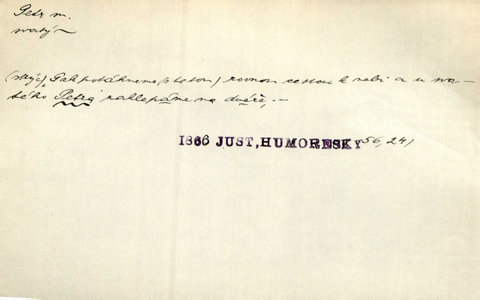 Petr m.
svatý
(strýc): Pak potáhneme (s tetou) rovnou cestou k nebi a u sva-
tého Petra zaklepáme na dvéře, .—
1866 JUST, HUMORESKY 56, 241